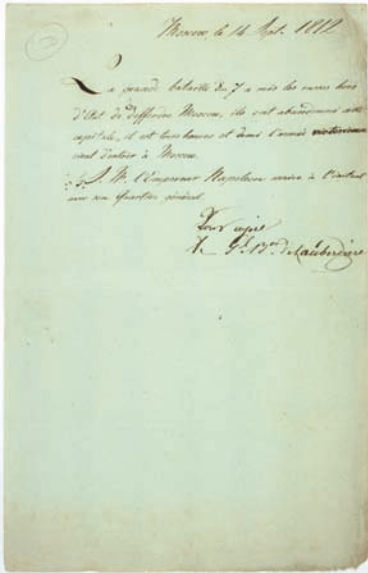 Moscou, le 14 Sept. 1812
La grande bataille du 7 a mis les russes hors
d'état de deffendre Moscou, ils ont abandonné cette
capitale, il est trois heures et demi l'armée victorieuse
vient d'entrer à Moscou.
S. M. l'Empereur Napoleon arrive à l'instant
son quartier général.
Pour copie
Le Gl Bon de Lauberdière